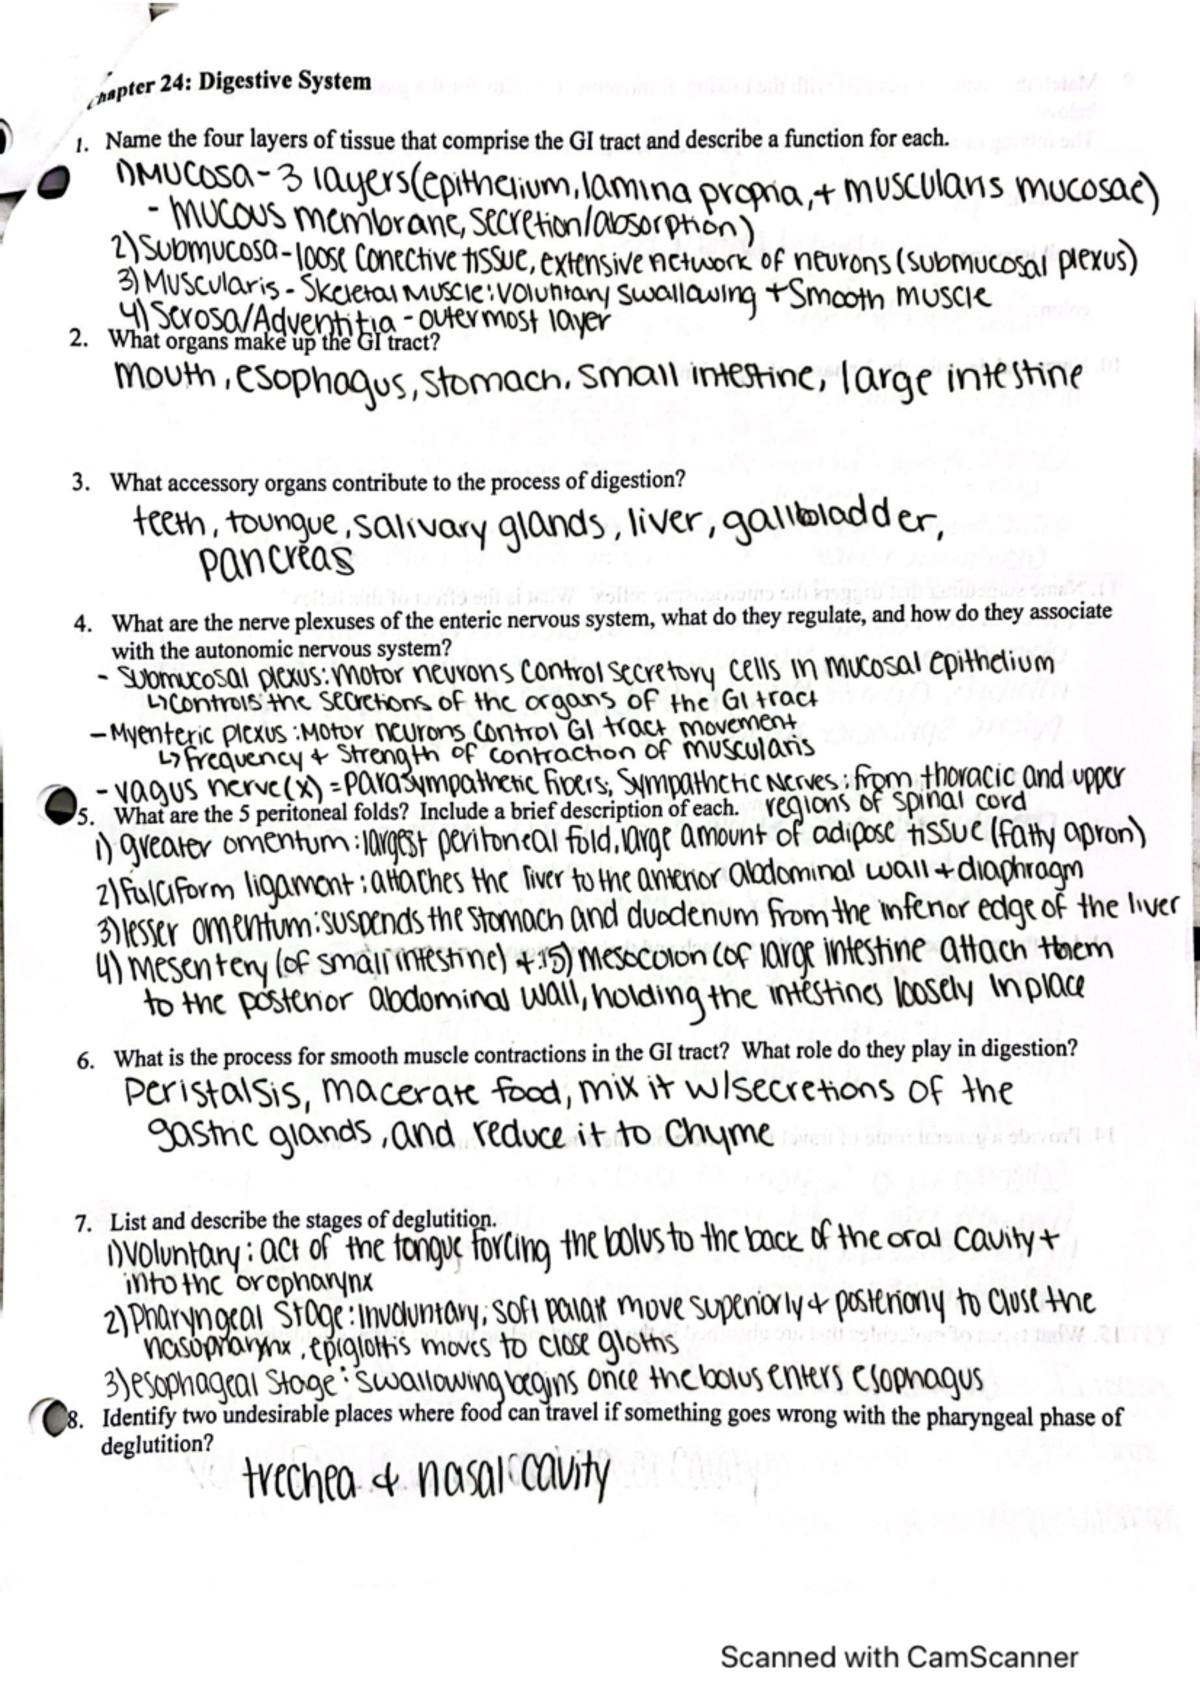 Chapter 24: Digestive System
1. Name the four layers of tissue that comprise the GI tract and describe a function for each.
1) Mucosa - 3 layers (epithelium, lamina propria, + muscularis mucosae)
- mucous membrane, secretion/absorption)
2) Submucosa - loose conective tissue, extensive network of neurons (submucosal plexus)
3) Muscularis - Skeletal Muscle: voluntary swallowing + Smooth muscle
4) Serosa/Adventitia - outermost layer
2. What organs make up the GI tract?
mouth, esophagus, stomach, small intestine, large intestine
3. What accessory organs contribute to the process of digestion?
teeth, toungue, salivary glands, liver, gallbladder,
pancreas
4. What are the nerve plexuses of the enteric nervous system, what do they regulate, and how do they associate
with the autonomic nervous system?
- Submucosal plexus: Motor neurons control secretory cells in mucosal epithelium
↳ Controls the secretions of the organs of the GI tract
- Myenteric plexus: Motor neurons control GI tract movement
↳ frequency + strength of contraction of muscularis
- vagus nerve (x) = parasympathetic fibers; Sympathetic Nerves: from thoracic and upper
regions of spinal cord
5. What are the 5 peritoneal folds? Include a brief description of each.
1) greater omentum: largest peritoneal fold, large amount of adipose tissue (fatty apron)
2) falciform ligament: attaches the liver to the anterior abdominal wall + diaphragm
3) lesser omentum: suspends the stomach and duodenum from the inferior edge of the liver
4) mesentery (of small intestine) + 5) mesocolon (of large intestine attach them
to the posterior abdominal wall, holding the intestines loosely in place
6. What is the process for smooth muscle contractions in the GI tract? What role do they play in digestion?
Peristalsis, macerate food, mix it w/secretions of the
gastric glands, and reduce it to chyme
7. List and describe the stages of deglutition.
1) voluntary: act of the tongue forcing the bolus to the back of the oral cavity +
into the oropharynx
2) Pharyngeal Stage: Involuntary, soft palate move superiorly + posteriorly to close the
nasopharynx, epiglottis moves to close glottis
3) esophageal Stage: swallowing begins once the bolus enters esophagus
8. Identify two undesirable places where food can travel if something goes wrong with the pharyngeal phase of
deglutition?
trechea + nasal cavity
Scanned with CamScanner